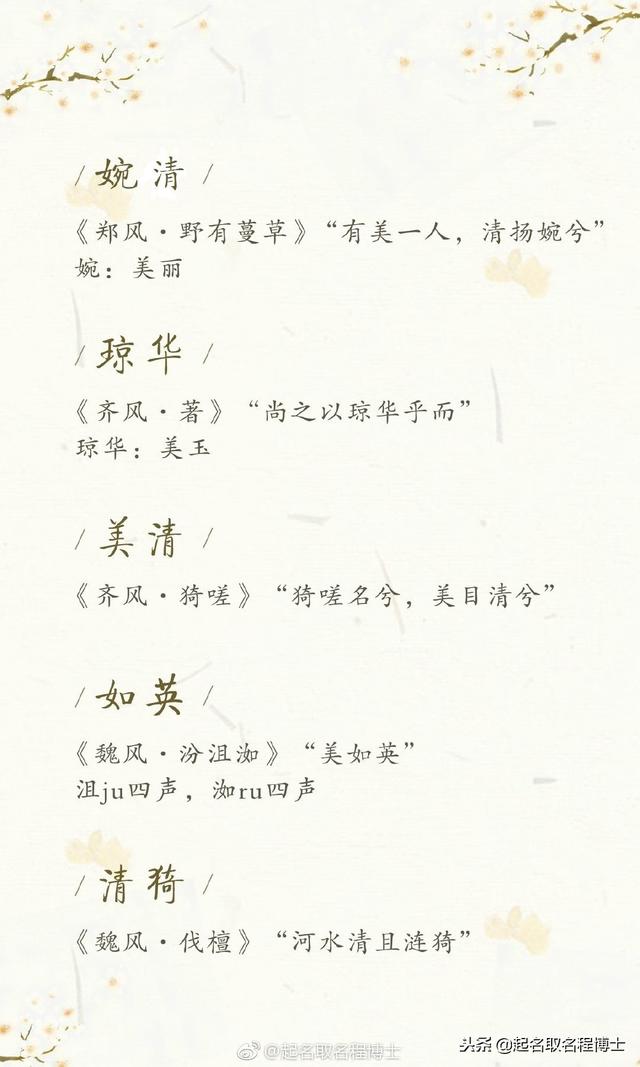 / 婉清 /
《郑风·野有蔓草》“有美一人，清扬婉兮”
婉：美丽
/ 琼华 /
《齐风·著》“尚之以琼华乎而”
琼华：美玉
/ 美清 /
《齐风·猗嗟》“猗嗟名兮，美目清兮”
/ 如英 /
《魏风·汾沮洳》“美如英”
沮ju四声，洳ru四声
/ 清猗 /
《魏风·伐檀》“河水清且涟猗”
@起名取名程博士
头条 @起名取名程博士